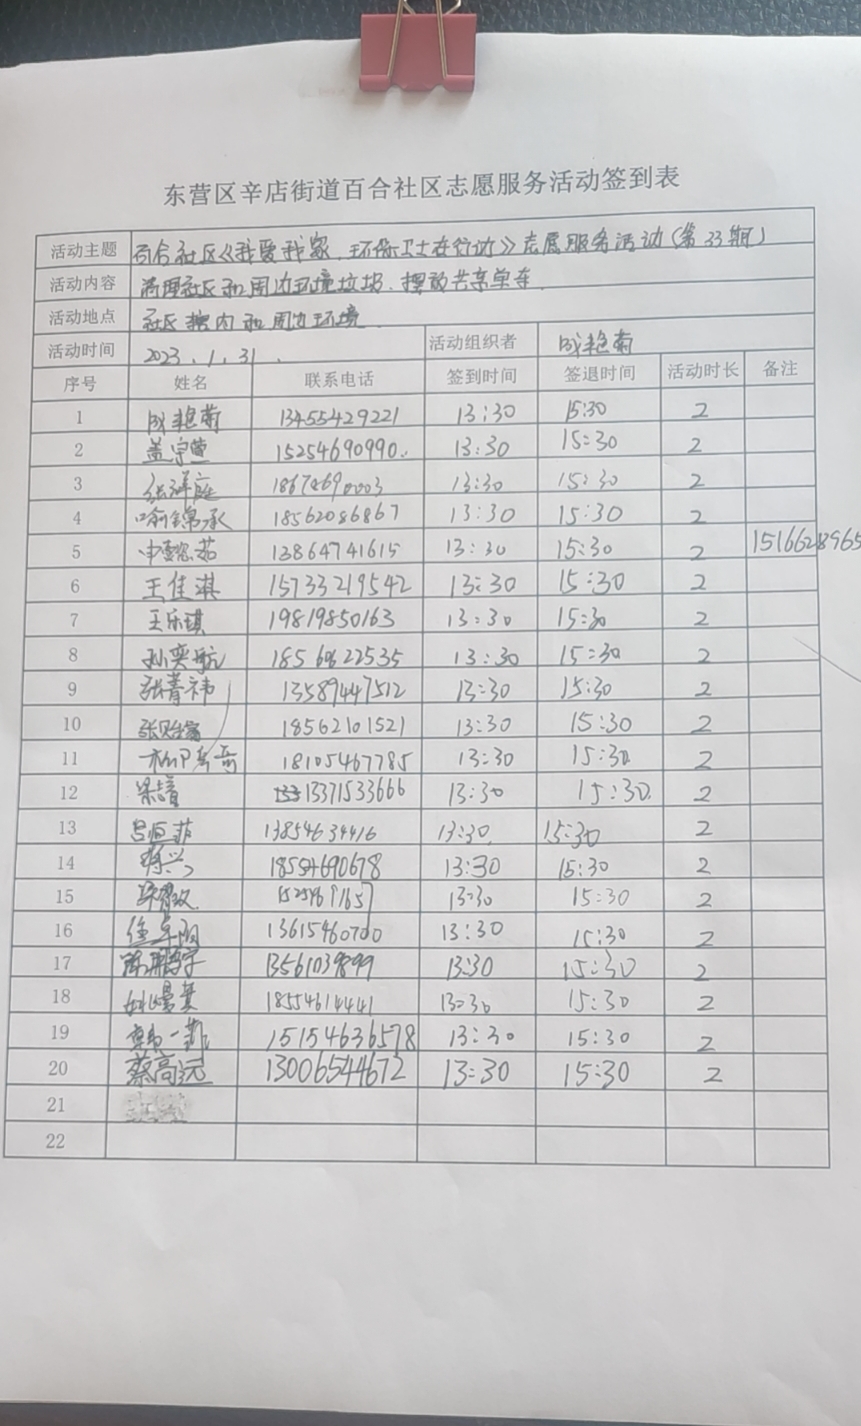 东营区辛店街道百合社区志愿服务活动签到表
活动主题 百合社区《我爱我家，环保卫士在行动》志愿服务活动（第33期）
活动内容 清理社区和周边环境垃圾、摆放共享单车
活动地点 社区辖内和周边环境
活动时间 2023.1.31. 活动组织者 成艳菊
序号 姓名 联系电话 签到时间 签退时间 活动时长 备注
1 成艳菊 13455429221 13:30 15:30 2
2 盖宇萱 15254690990 13:30 15:30 2
3 13:30 15:30 2
4 喻锦承 18562086867 13:30 15:30 2
5 13864741615 13:30 15:30 2
6 王佳淇 15733219542 13:30 15:30 2
7 王乐琪 19819850163 13:30 15:30 2
8 孙奕航 13:30 15:30 2
9 张菁祎 13589447512 13:30 15:30 2
10 18562101521 13:30 15:30 2
11 18105467785 13:30 15:30 2
12 13371533666 13:30 15:30 2
13 13854634416 13:30 15:30 2
14 18554690678 13:30 15:30 2
15 13:30 15:30 2
16 13615460700 13:30 15:30 2
17 13:30 15:30 2
18 18554614441 13:30 15:30 2
19 15154636578 13:30 15:30 2
20 蔡高远 13006544672 13:30 15:30 2
21
22